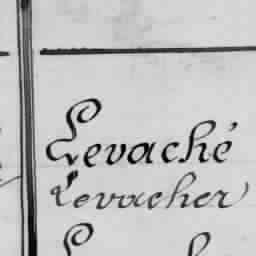 Levaché
Levacher